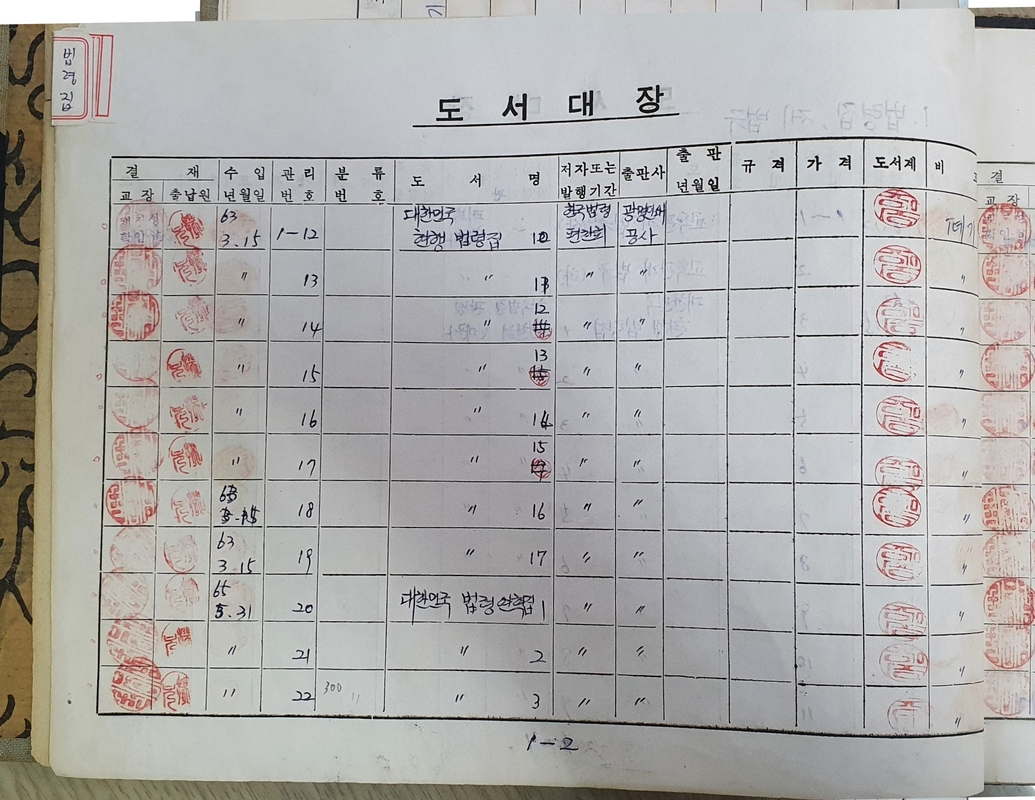 법
령
집
도 서 대 장
결 재 수 입 관 리 분 류 도 서 명 저자또는 출판사 출 판 규 격 가 격 도서계 비
교 장 출납원 년월일 번 호 번 호 발행기간 년월일
63 대한민국 한국법령
3.15 1-12 현행 법령집 편찬회 공사
〃 13 〃 〃 〃 〃
12
〃 14 〃 〃 〃 〃
13
〃 15 〃 〃 〃 〃
〃 16 〃 14 〃 〃 〃
15
〃 17 〃 〃 〃 〃
18 〃 16 〃 〃 〃
63
3 15 19 〃 17 〃 〃 〃
65
5.31 20 대한민국 법령연혁집 1 〃 〃 〃
〃 21 〃 2 〃 〃 〃
〃 22 300 〃 〃 3 〃 〃 〃
1-2
결
교 장